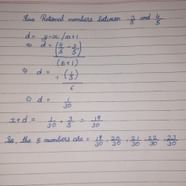 Five Rational numbers between 3/5 and 4/5
d = y-x /n+1
⇒ d = (4/5 - 3/5)
(5+1)
⇒ d = (1/5)
6
⇒ d = 1
30
x+d = 1/30 + 3/5 = 19/30
So, the 5 numbers are = 19/30, 20/30, 21/30, 22/30, 23/30